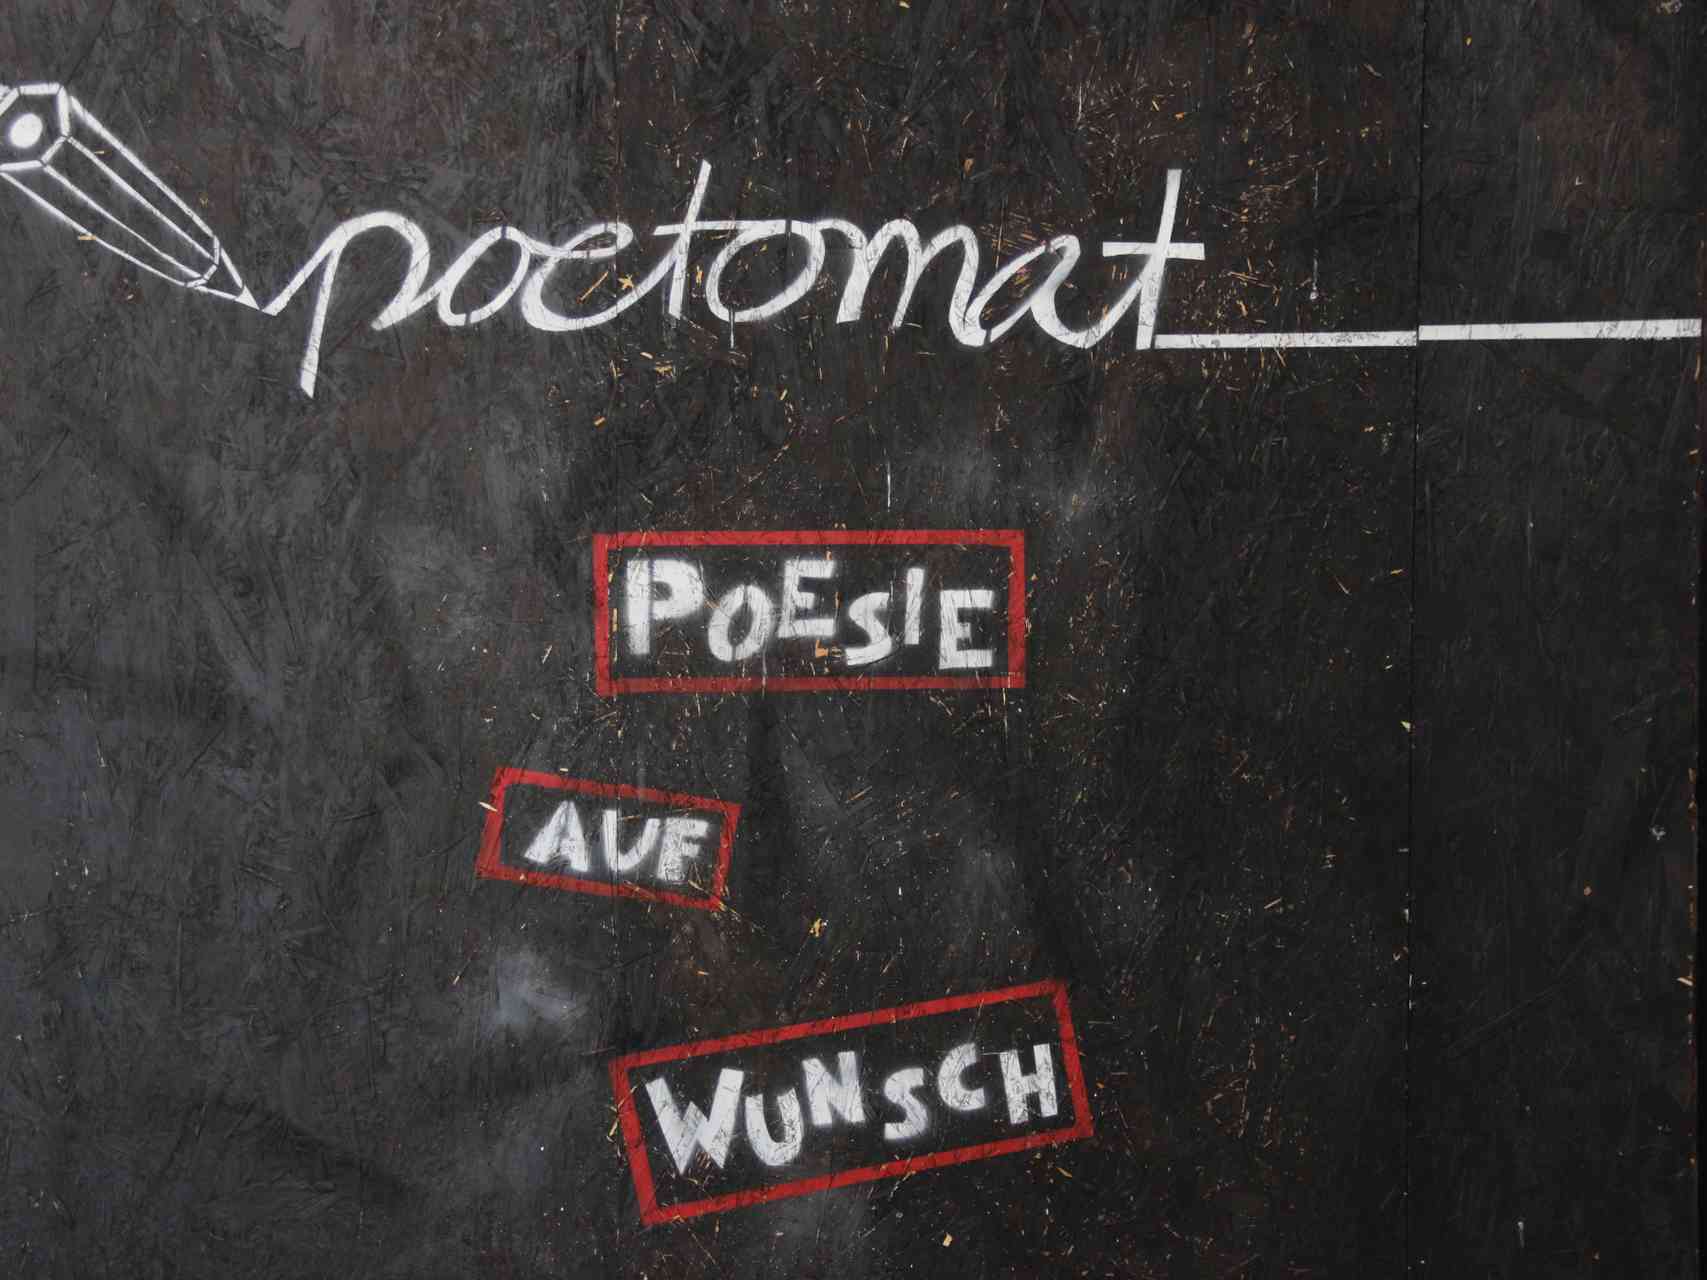 poetomat
POESIE
AUF
WUNSCH